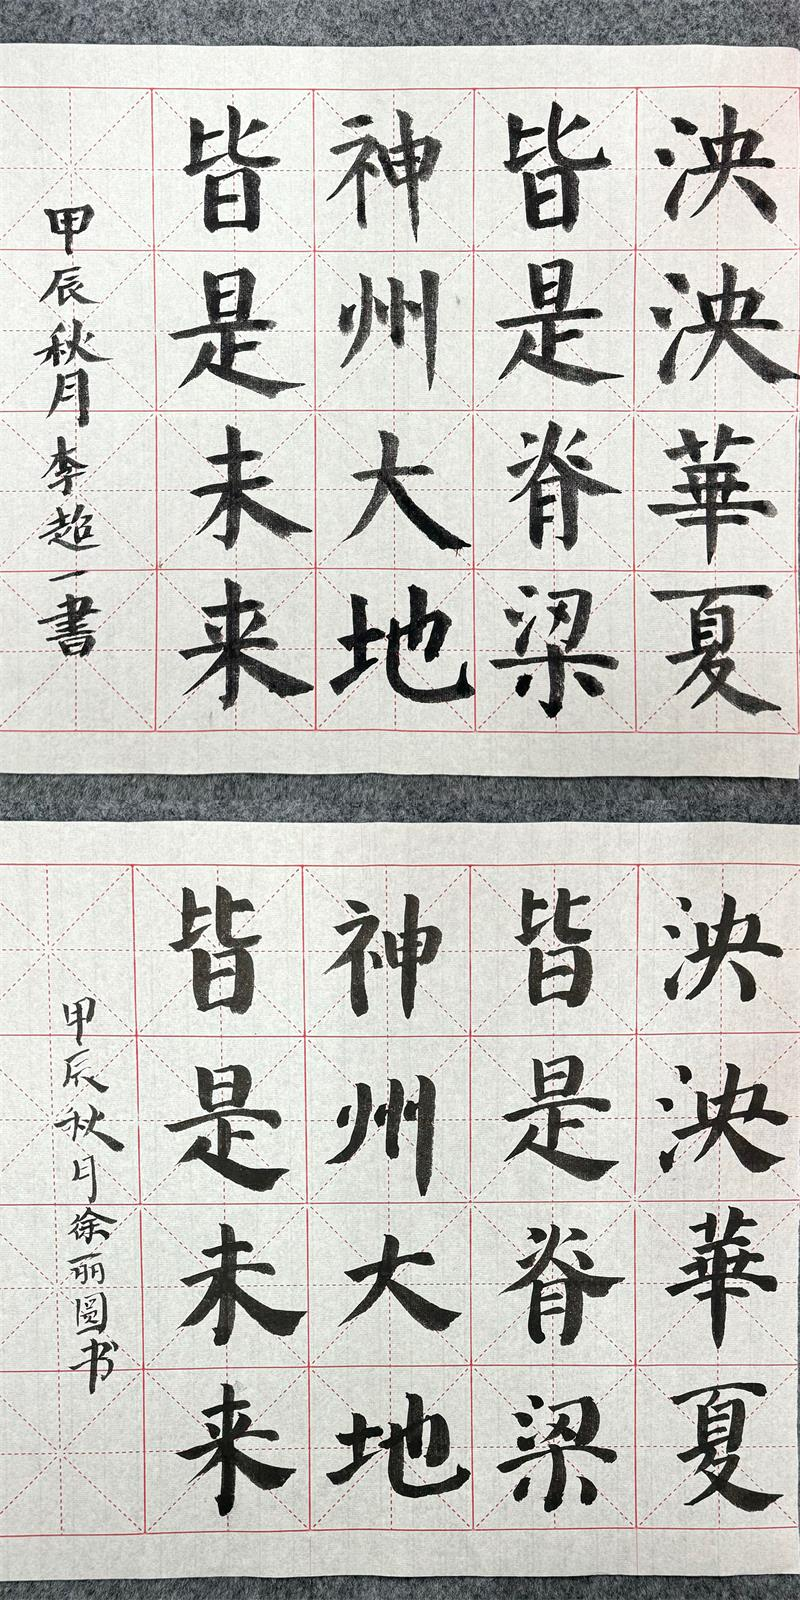 泱泱華夏
皆是脊梁
神州大地
皆是未来
甲辰秋月李超一書
泱泱華夏
皆是脊梁
神州大地
皆是未来
甲辰秋月徐丽圆书